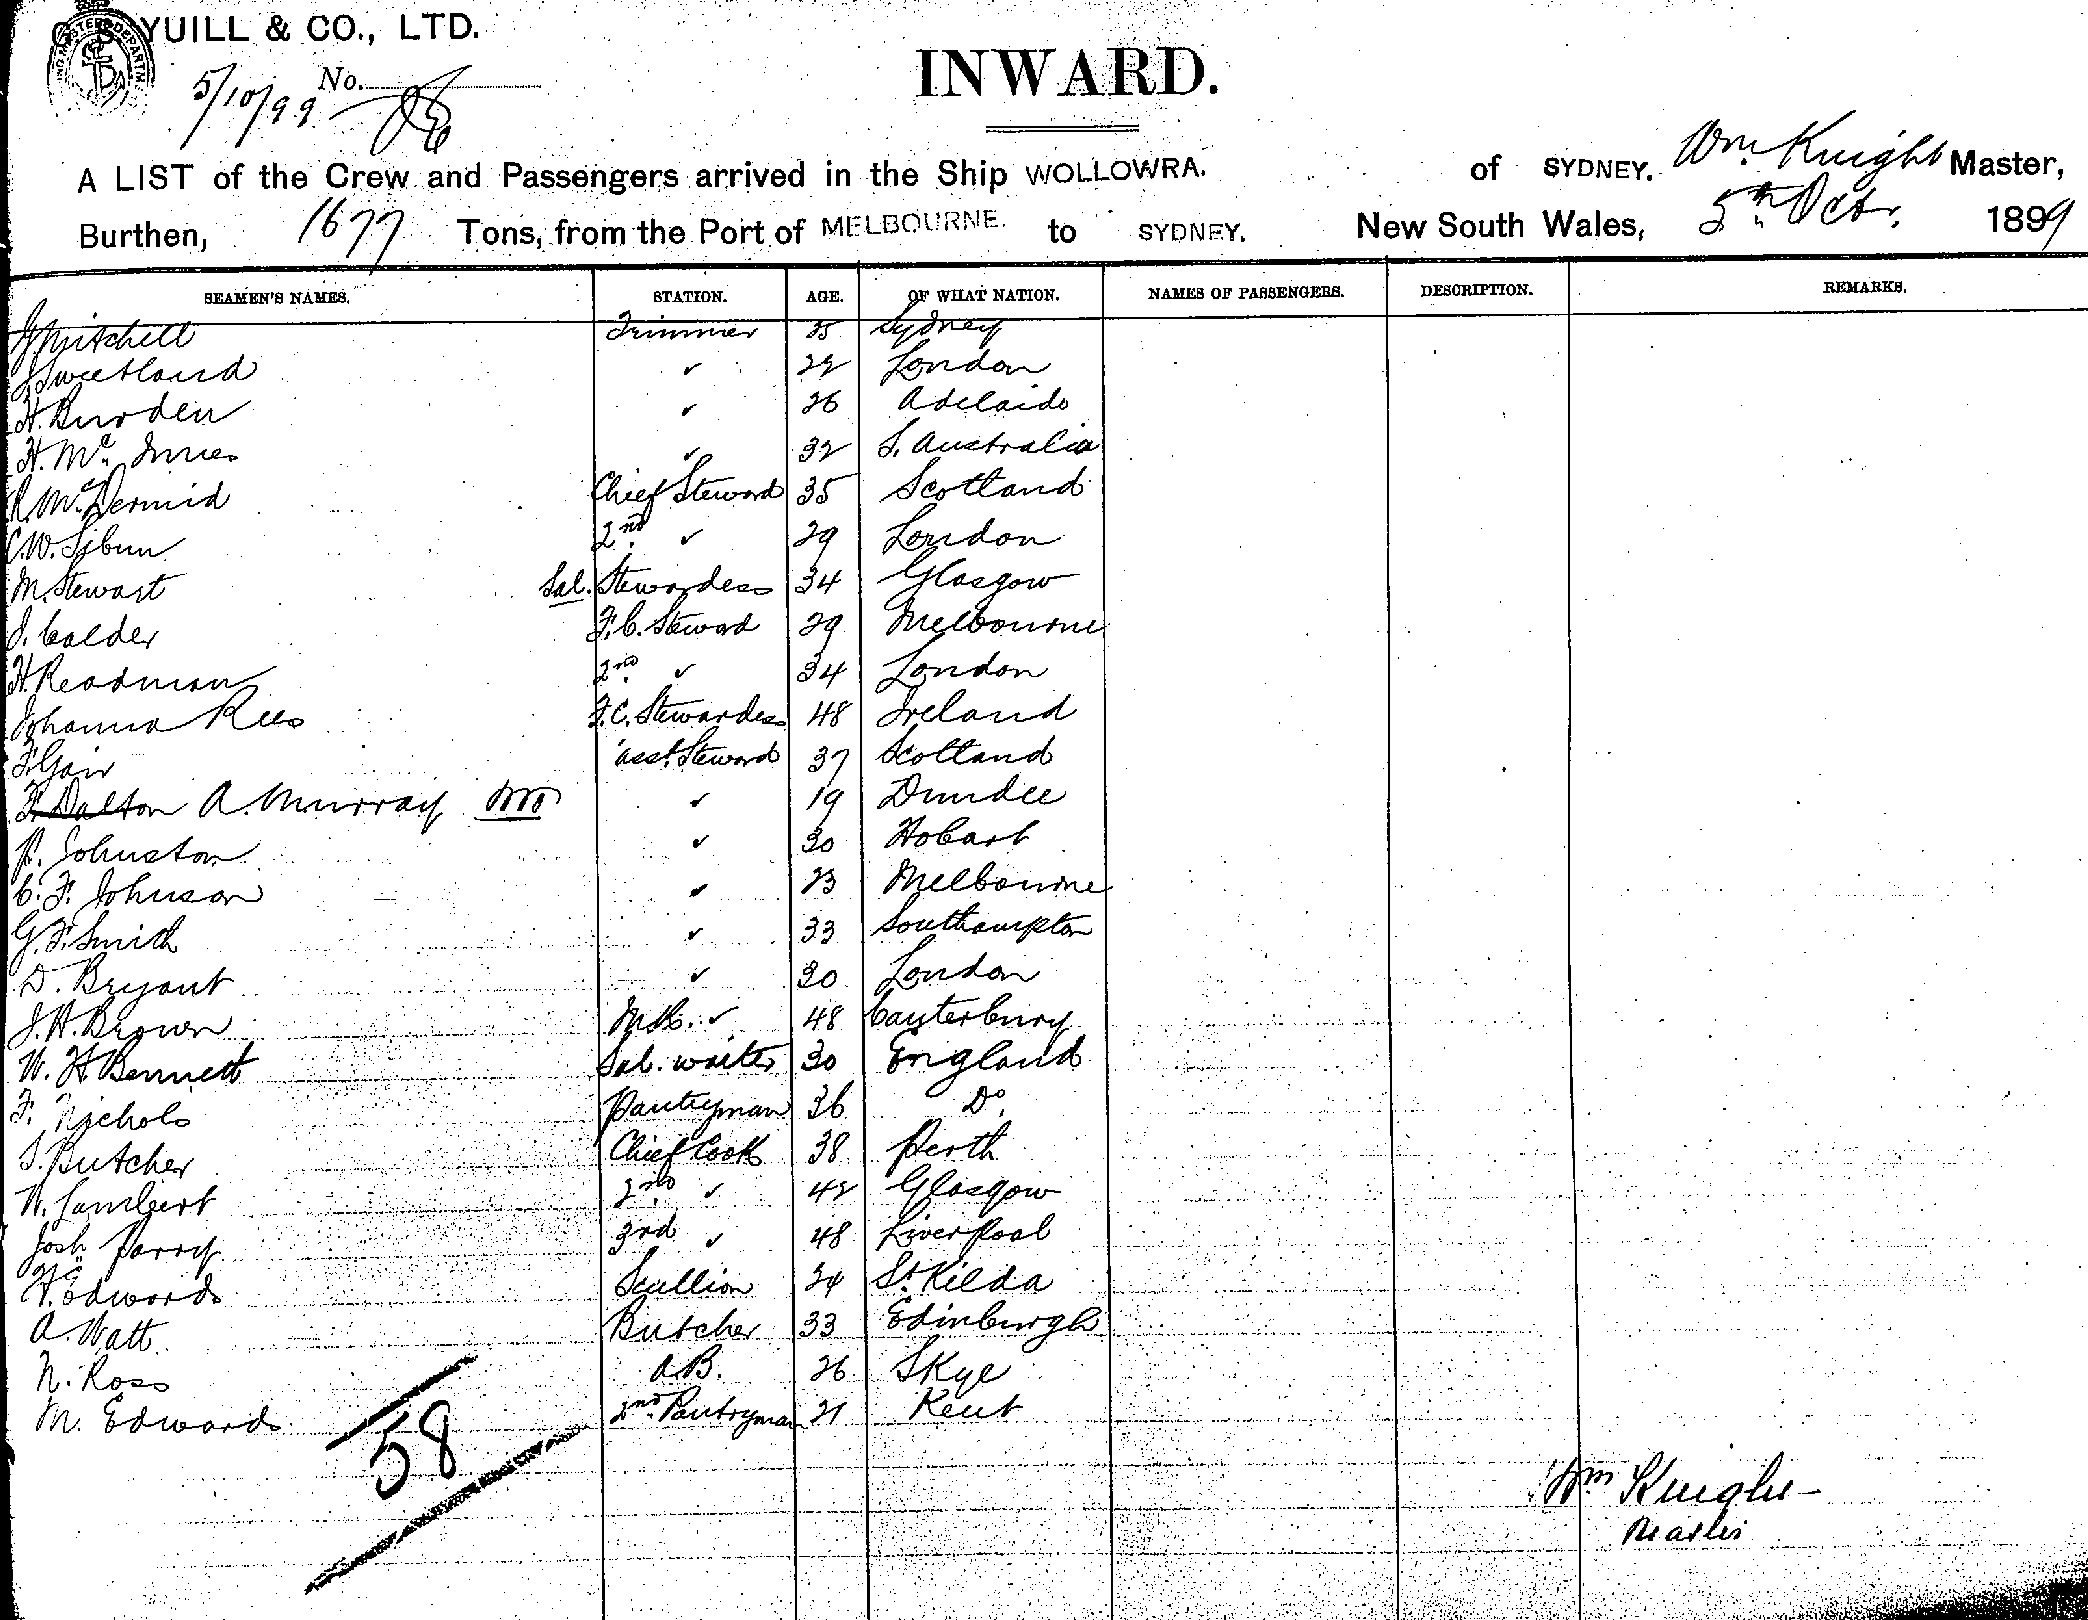 YUILL & CO., LTD.
INWARD.
No.
5/10/99
A LIST of the Crew and Passengers arrived in the Ship WOLLOWRA. of SYDNEY. Wm. Knight Master,
Burthen, 1677 Tons, from the Port of MELBOURNE. to SYDNEY. New South Wales, 5th Octr. 1899
SEAMEN'S NAMES. STATION. AGE. OF WHAT NATION. NAMES OF PASSENGERS. DESCRIPTION. REMARKS.
J Mitchell Trimmer 25 Sydney
J Sweetland ✓ 22 London
H. Burden ✓ 26 Adelaide
H. Mc Innes ✓ 32 S. Australia
R. McDermid Chief Steward 35 Scotland
C W. Sibun 2nd ✓ 29 London
M. Stewart Sal. Stewardess 34 Glasgow
J. Calder F.C. Steward 29 Melbourne
H. Readman 2nd ✓ 34 London
Johanna Rees F.C. Stewardess 48 Ireland
F. Gair asst. Steward 37 Scotland
H. Dalton A. Murray ✓ 19 Dundee
P. Johnston ✓ 30 Hobart
C. F. Johnson ✓ 23 Melbourne
G. F. Smith ✓ 33 Southampton
D. Bryant ✓ 30 London
J. H. Brown ✓ 48 Canterbury
W. H Bennett Sal. waiter 30 England
F. Nichols Pantryman 36 Do.
S. Butcher Chief Cook 38 Perth
W. Lambert 2nd ✓ 42 Glasgow
Josh. Parry 3rd ✓ 48 Liverpool
H. Edwards Scullion 24 St. Kilda
A. Watt Butcher 33 Edinburgh
N. Ross A.B. 26 Skye
M. Edwards 2nd. Pantryman 21 Kent
58
Wm Knight
Master